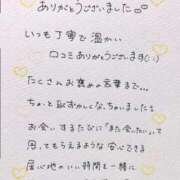 ありがとうございました
いつも丁寧で温かい
口コミありがとうございます(:)
たくさんお褒めの言葉まで...
ちょっと恥ずかしくなっちゃいましたが
お会いするたびに「また会いたい」って
思ってもらえるような安心できる
居心地のいい時間を一緒に